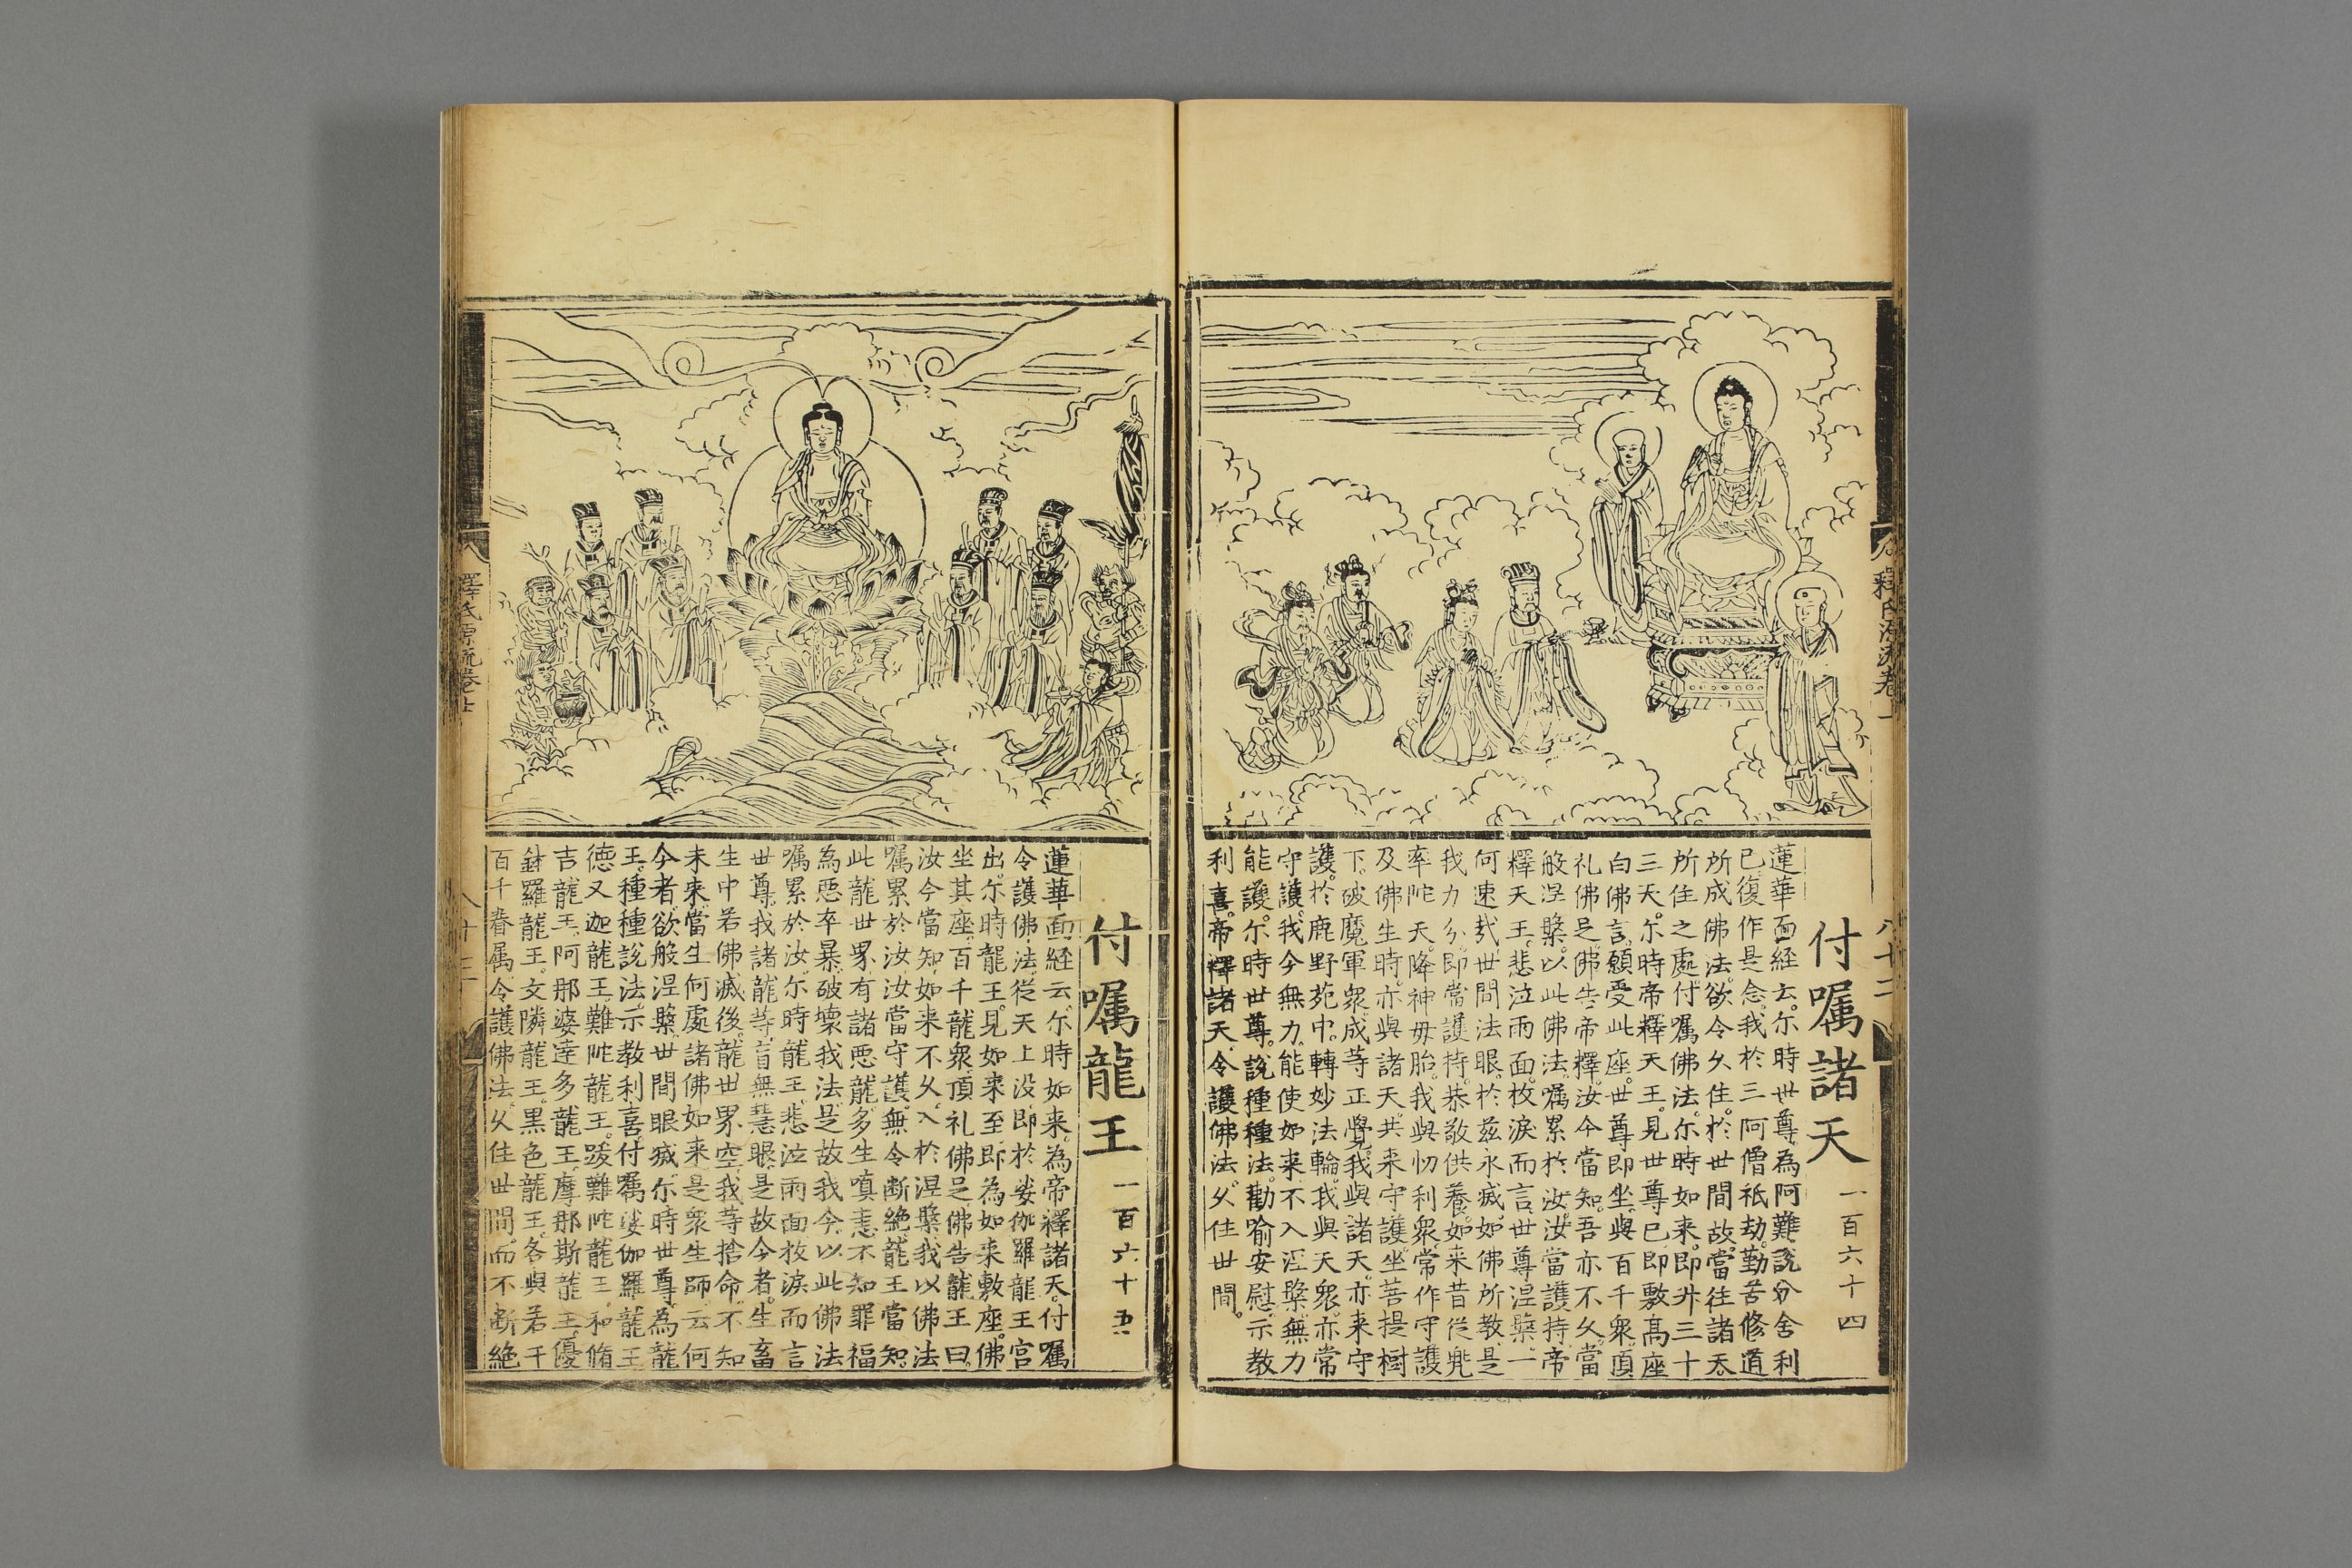 釋氏源流卷上
八十二
付囑諸天 一百六十四
蓮華面経云尔時世尊為阿難說分舍利
已復作是念我於三阿僧祇劫勤苦修道
所成佛法欲令久住於世間故當往諸天
所住之處付囑佛法尔時如来即升三十
三天尔時帝釋天王見世尊已即敷髙座
白佛言願受此座世尊即坐與百千衆頂
礼佛足佛告帝釋汝今當知吾亦不久當
般涅槃以此佛法囑累於汝汝當護持帝
釋天王悲泣雨面抆淚而言世尊涅槃一
何速㦲世間法眼於兹永滅如佛所教是
我力分即當護持恭敬供養如来昔従兠
率陁天降神母胎我與忉利衆常作守護
及佛生時亦與諸天共来守護坐菩提樹
下破魔軍衆成等正覺我與諸天亦来守
護於鹿野苑中轉妙法輪我與天衆亦常
守護我今無力能使如来不入涅槃無力
能護尔時世尊說種種法勸喻安慰示教
利喜帝釋諸天令護佛法久住世間
付囑龍王 一百六十五
蓮華面経云尔時如来為帝釋諸天付囑
令護佛法従天上没即於娑伽羅龍王宫
出尔時龍王見如来至即為如来敷座佛
坐其座百千龍衆頂礼佛足佛告龍王曰
汝今當知如来不久入於涅槃我以佛法
囑累於汝汝當守護無令断絶龍王當知
此龍世界有諸悪龍多生嗔恚不知罪福
為悪卒暴破壞我法是故我今以此佛法
囑累於汝尔時龍王悲泣雨面抆淚而言
世尊我諸龍等盲無慧眼是故今者生畜
生中若佛滅後龍世界空我等捨命不知
未來當生何處諸佛如来是衆生師云何
今者欲般涅槃世間眼滅尔時世尊為龍
王種種說法示教利喜付囑娑伽羅龍王
德又迦龍王難陁龍王跋難陁龍王和脩
吉龍王阿那婆達多龍王摩那斯龍王優
鉢羅龍王文隣龍王黒色龍王各與若干
百千眷属令護佛法久住世間而不断絶
釋氏源流卷上
八十三